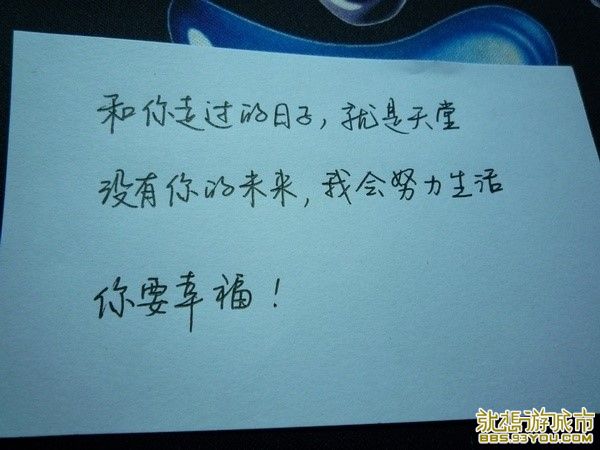 和你走过的日子，就是天堂
没有你的未来，我会努力生活
你要幸福！
就想游城市
885.93YOU.COM